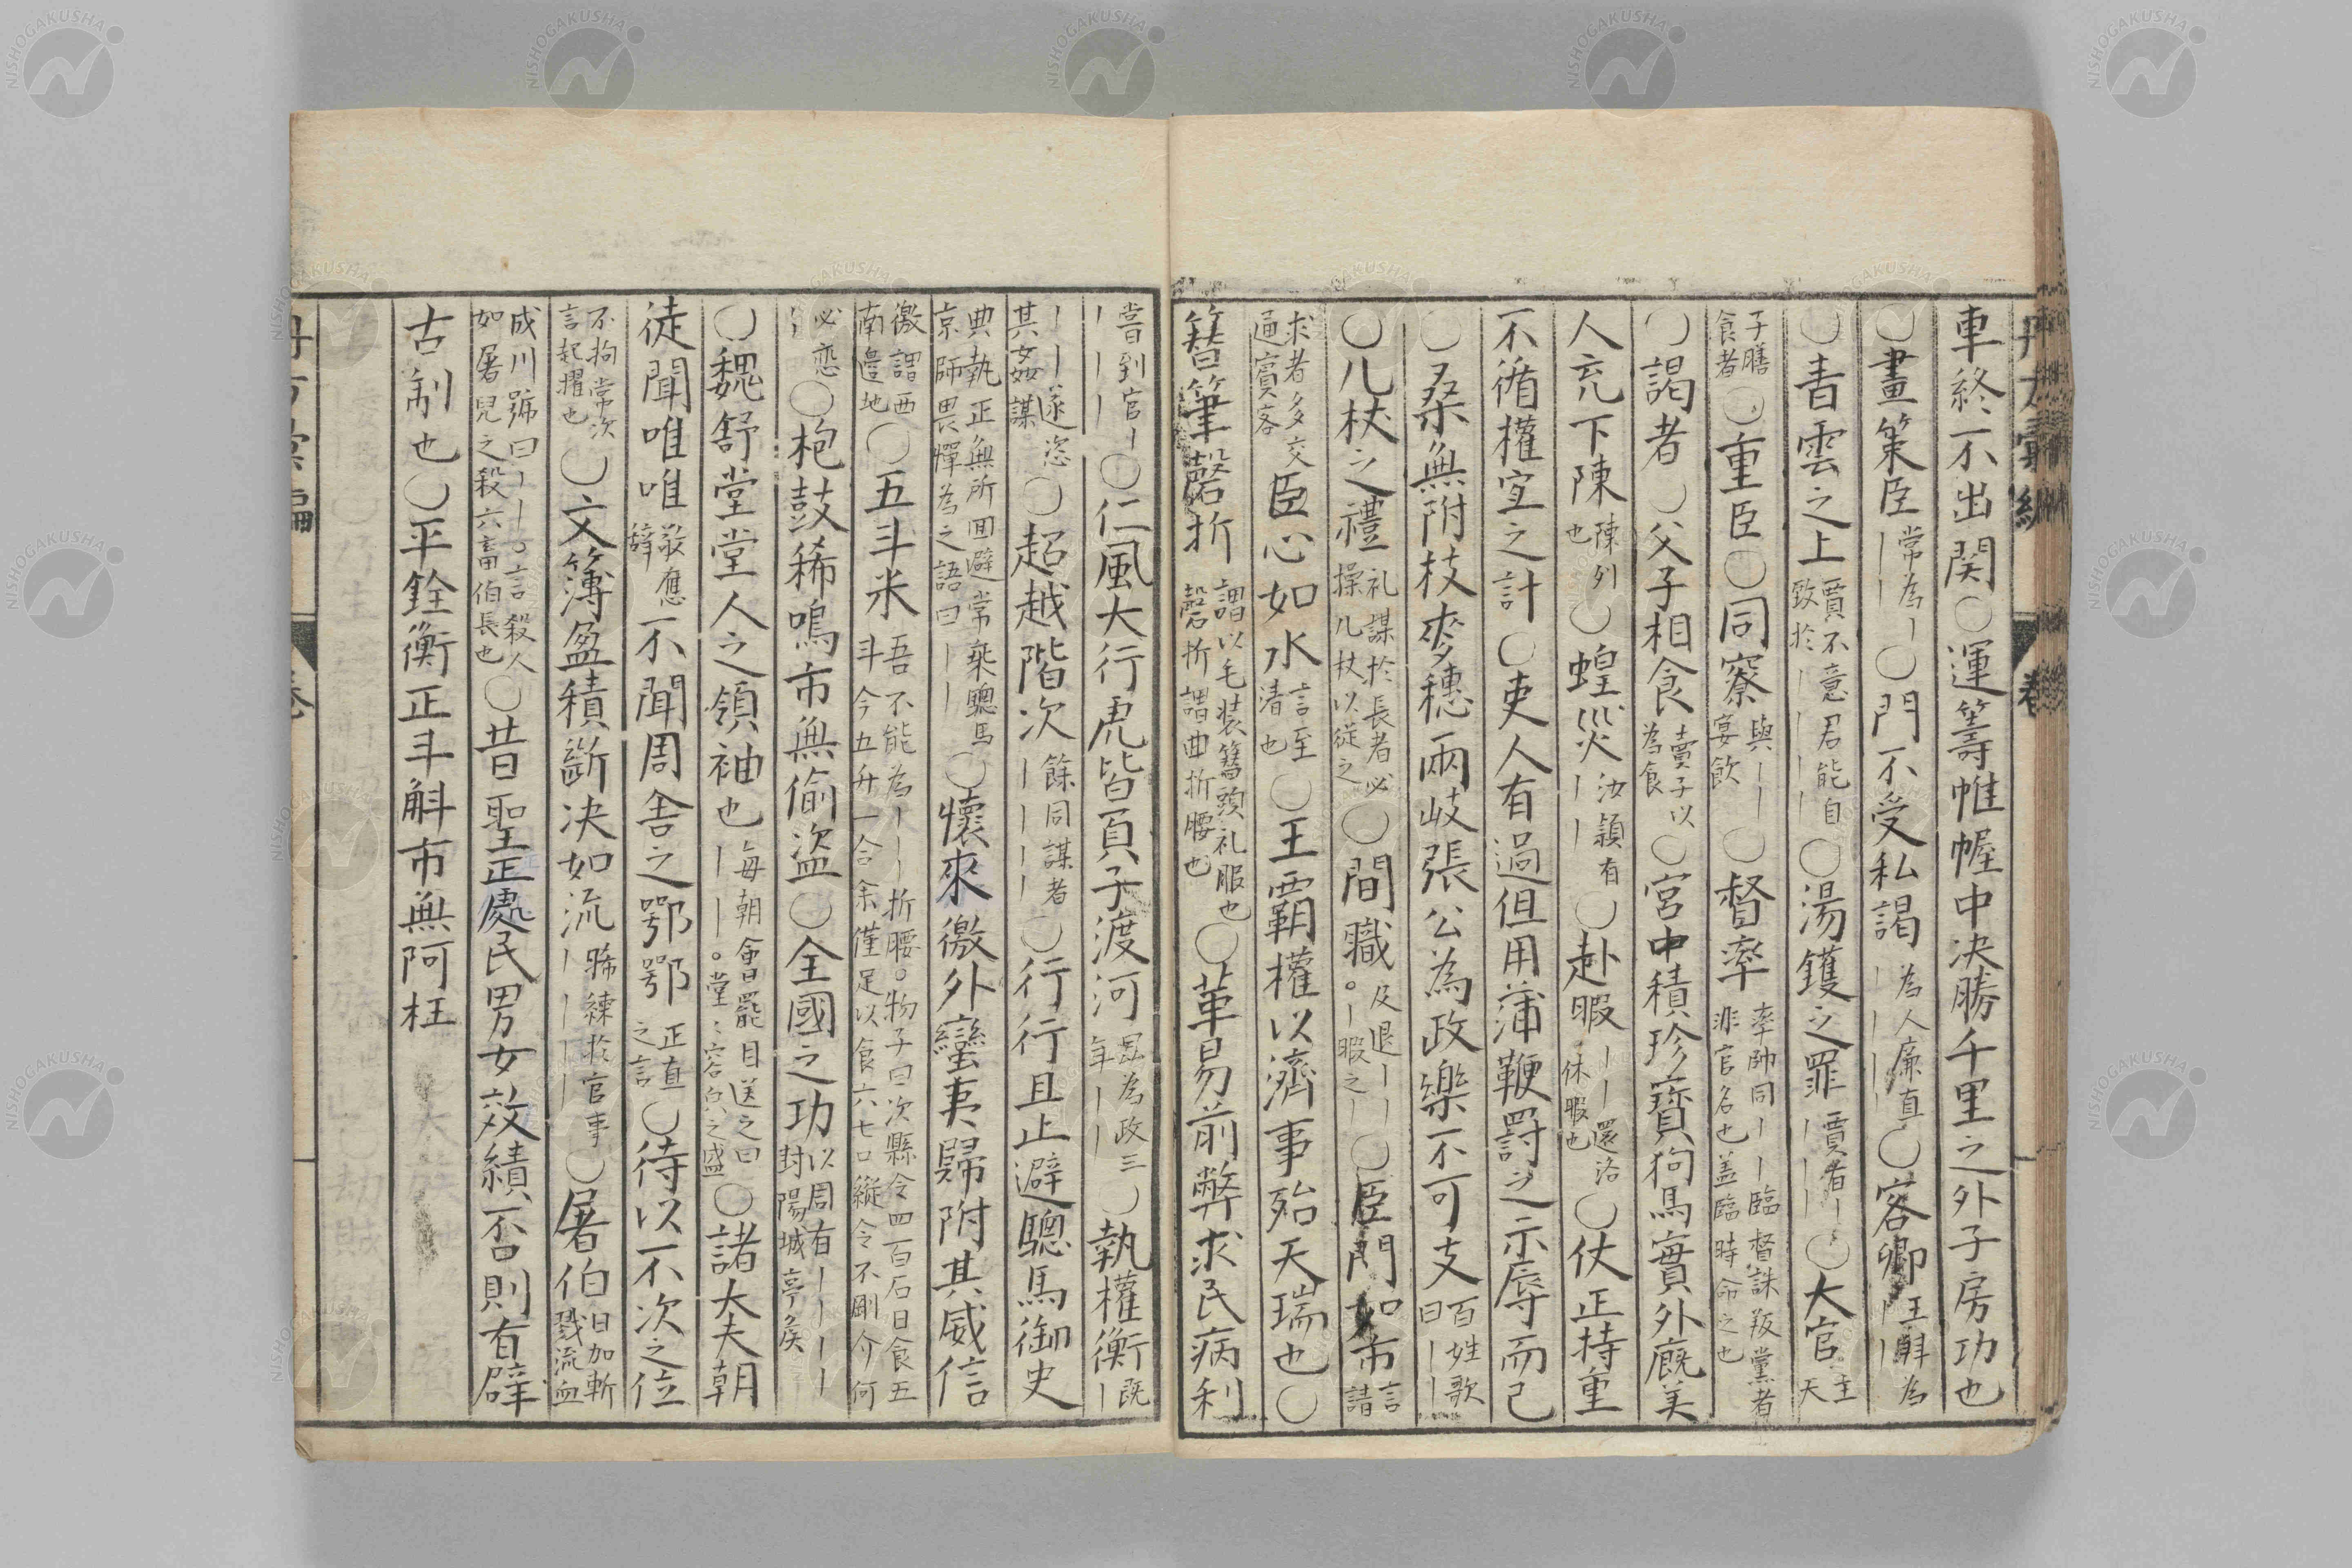 車終不出関〇運籌帷幄中决勝千里之外子房功也
〇畫策臣常為丨丨丨〇門不受私謁為人廉直丨丨丨丨〇客卿
〇青雲之上賈不意君能自致於丨丨丨丨〇湯鑊之罪賈有丨丨丨丨〇大官主天
子膳食者〇重臣〇同寮與丨丨宴飲〇督率率帥同丨丨臨督誅叛黨者非官名也蓋臨時命之也
〇謁者〇父子相食賣子以為食〇宮中積珍寶狗馬實外廐美
人充下陳陳列也〇蝗災汝潁有丨丨〇赴暇丨丨還洛休暇也〇仗正持重
不循權宜之計〇吏人有過但用蒲鞭罸之示辱而已
〇桑無附枝麥穗兩岐張公為政樂不可支百姓歌曰丨丨
〇几杖之禮礼謀於長者必操几杖以従之〇間職及退丨丨。丨暇之丨〇臣門如市言請
求者多交通賓客臣心如水言至清也〇王覇權以濟事殆天瑞也〇
簪筆磬折謂以毛装簪頭礼服也磬折謂曲折腰也〇革易前弊求民病利
嘗到官丨丨丨丨〇仁風大行虎皆負子渡河昆為政三年丨丨〇執權衡既丨
丨丨遂恣其姦謀〇超越階次餘同謀者丨丨丨丨〇行行且止避驄馬御史
典執正無所囬避常乘驄馬京師畏憚為之語曰丨丨〇懷來徼外蠻夷歸附其威信
徼謂西南邉地〇五斗米吾不能為丨丨丨折腰。物子曰次縣令四百石日食五斗今五升一合余僅足以食六七口縦令不剛介何
必恋丨丨〇枹鼓稀鳴市無偷盗〇全國之功以周有丨丨丨丨封陽城亭矦
〇魏舒堂堂人之領袖也每朝會罷目送之曰丨丨丨。堂〻容皃之盛〇諸大夫朝
徒聞唯唯敬應辞不聞周舎之鄂鄂正直之言〇待以不次之位
不拘常次言起擢也〇文簿盈積斷决如流稀練於官事丨丨丨丨〇屠伯日加斬戮流血
成川號曰丨丨。言殺人如屠兒之殺六畜伯長也〇昔聖正處民男女效績否則有辟
古制也〇平銓衡正斗斛市無阿枉